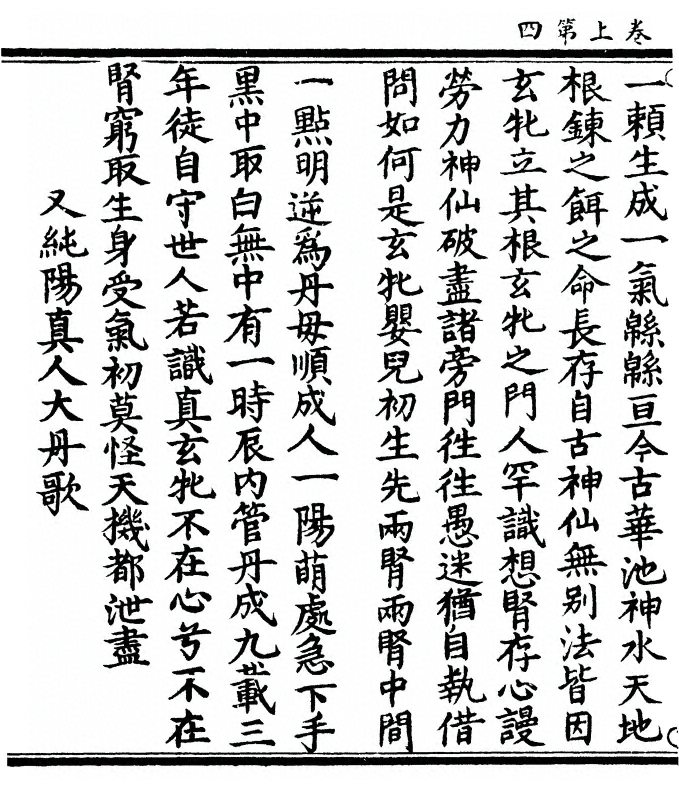 卷上第四
一賴生成一氣緜緜亘今古華池神水天地
根鍊之餌之命長存自古神仙無别法皆因
玄牝立其根玄牝之門人罕識想腎存心謾
勞力神仙破盡諸旁門徃徃愚迷猶自執借
問如何是玄牝嬰兒初生先兩腎兩腎中間
一點明逆爲丹毋順成人一陽萌處急下手
黑中取白無中有一時辰内管丹成九載三
年徒自守世人若識真玄牝不在心兮不在
腎窮取生身受氣初莫怪天機都泄盡
又純陽真人大丹歌